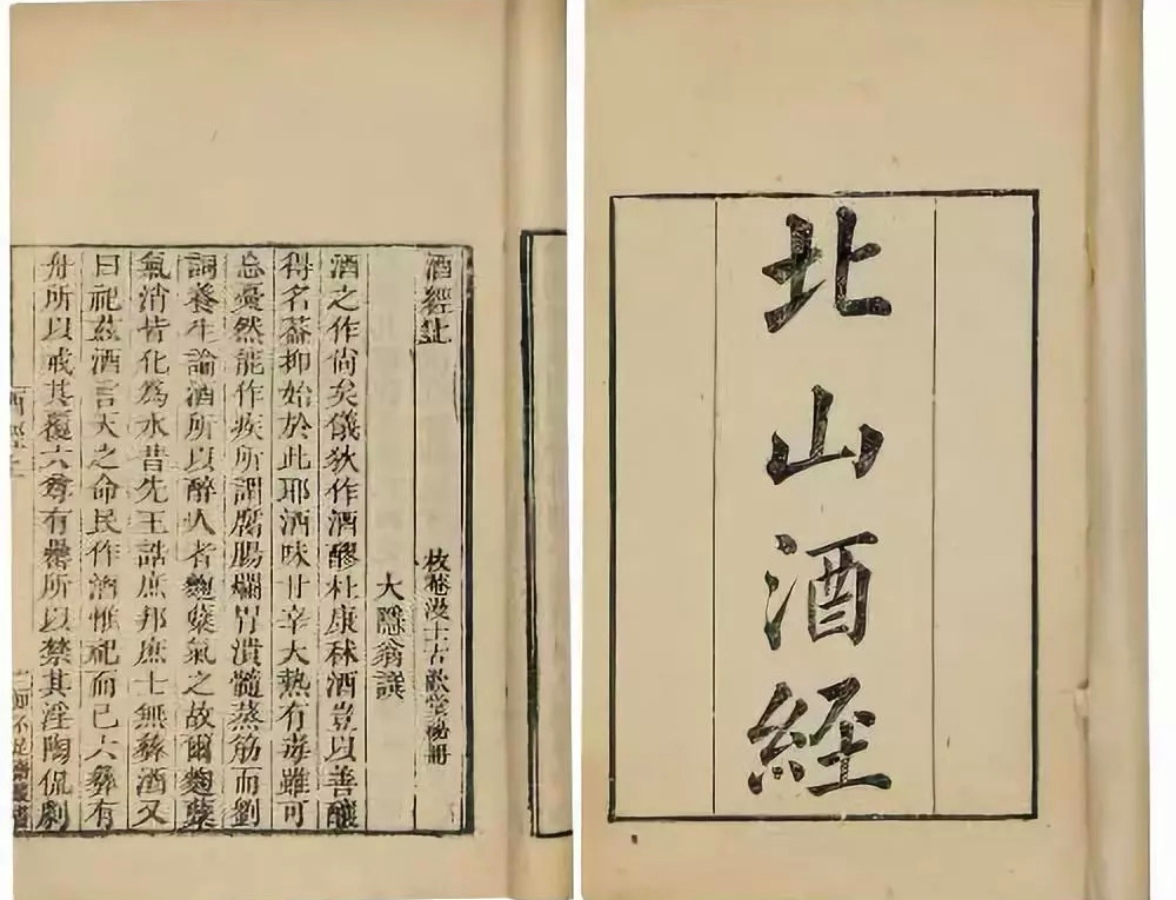 北山酒経
酒經上
枚菴漫士古歡堂秘冊
大隱翁譔
酒之作尚矣儀狄作酒醪杜康秫酒豈以善釀
得名蓋抑始於此耶酒味甘辛大熱有毒雖可
忘憂然能作疾所謂腐腸爛胃潰髓蒸筋而劉
詞養生論酒所以醉人者麴櫱氣之故爾麴櫱
氣消皆化爲水昔先王誥庶邦庶士無彝酒又
曰祀茲酒言天之命民作酒惟祀而已六彝有
舟所以戒其覆六尊有罍所以禁其淫陶侃劇